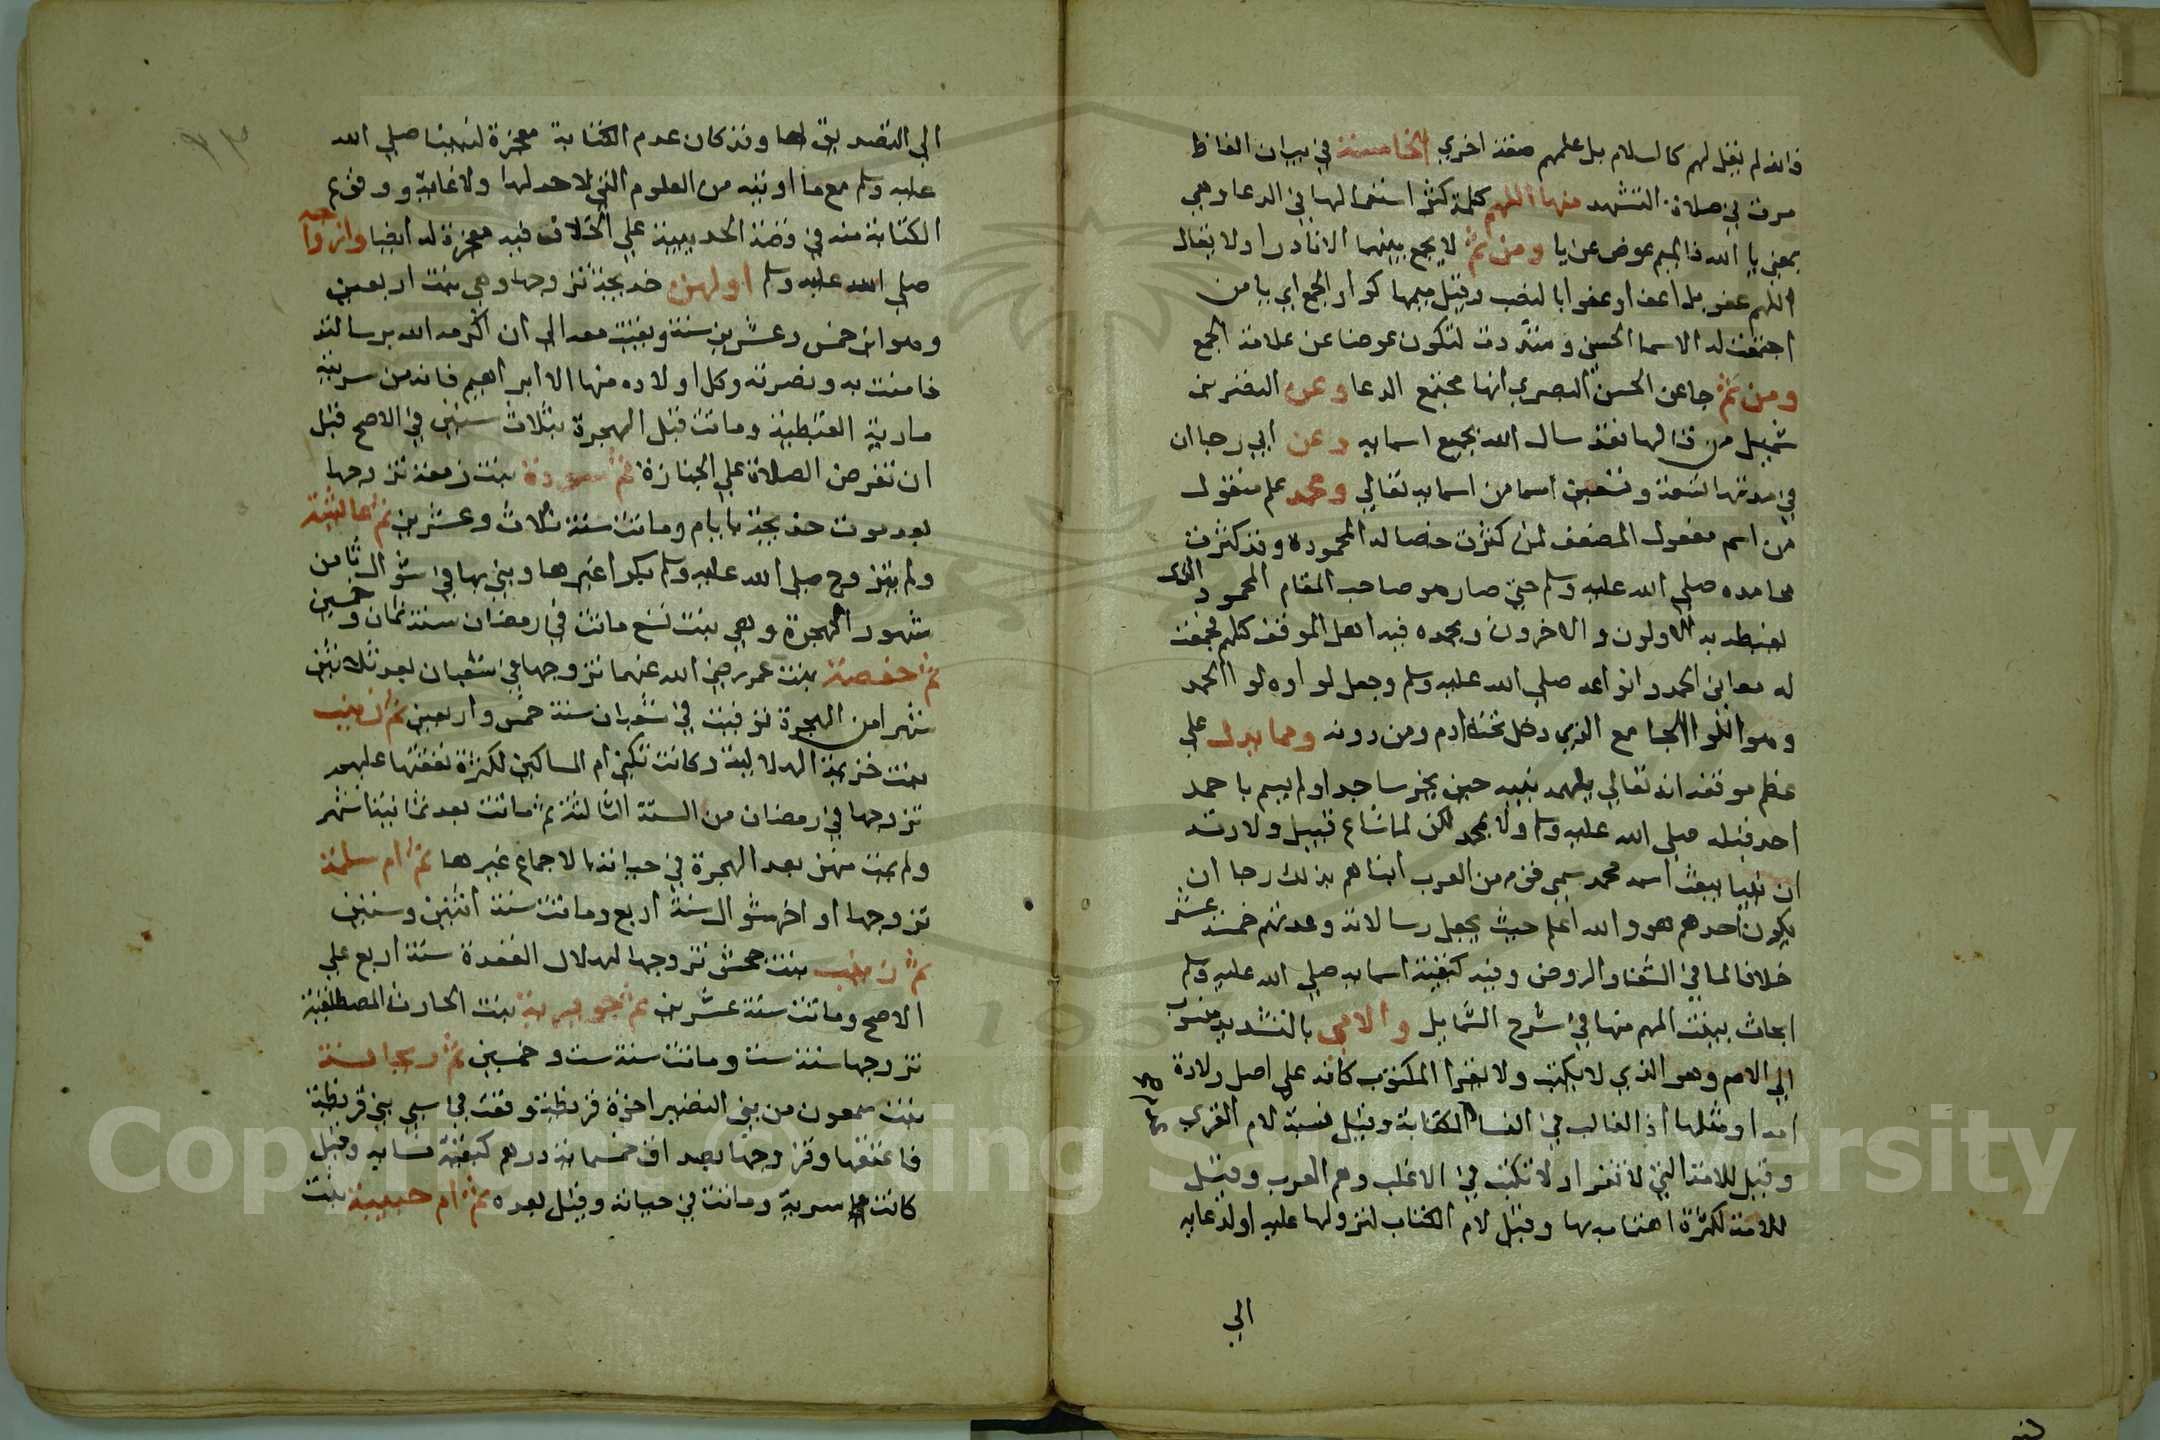 فانه لم يقل لهم كالسلام بل علمهم صفة اخري الخامسة في بيان الفاظ
مرت في صلاة التشهد منها اللهم كلمة كثر استعمالها في الدعا وهي
بمعني يا الله فالميم عوض عن يا ومن ثم لا يجمع بينهما الا نادرا ولا يقال
اللهم عفو بل اعف او عفوا بالنصب وقيل ميمها كواو الجمع اي يا من
اجتمعت له الاسما الحسني وشددت لتكون عوضا عن علامة الجمع
ومن ثم جا عن الحسن البصري انها مجتمع الدعا وعن النضر بن
شميل من قالها فقد سال الله بجميع اسمايه وعن ابي رجا ان
في ميمها تسعة وتسعين اسما من اسمايه تعالي ومحمد علم منقول
من اسم مفعول المضعف لمن كثرت خصاله المحمودة وقد كثرت
محامده صلي الله عليه وسلم حتي صار هو صاحب المقام المحمود الذي
يغبطه به الاولون والاخرون ويحمده فيه اهل الموقف كلهم فجمعت
له معاني الحمد وانواعه صلي الله عليه وسلم وجعل لواوه لوا الحمد
وهو اللوا الجامع الذي دخل تحته ادم ومن دونه ومما يدل علي
عظم موقعه انه تعالي يلهمه بنيه حين يخر ساجدا ولم يسم باحمد
احد قبله صلي الله عليه وسلم ولا بمحمد لكن لما شاع قبيل ولادته
ان نبيا يبعث اسمه محمد سمي قوم من العرب ابناهم بذلك رجا ان
يكون احدهم هو والله اعلم حيث يجعل رسالاته وعدتهم خمسة عشر
خلافا لما في الشفا والروض وفيه كبقية اسمايه صلي الله عليه وسلم
ابحاث بينت المهم منها في شرح الشمايل والامي بالتشديد منسوب
الي الام وهو الذي لا يكتب ولا يقرا المكتوب كانه علي اصل ولادة
امه او مثلها اذ الغالب في النسا الكتابة وقيل نسبة لام القري
وقيل للامة التي لا تقرا ولا تكتب في الاغلب وهم العرب وقيل
للامة لكثرة اهتمامه بها وقيل لام الكتاب لنزولها عليه اولدعايه
الي
الي التصديق لها وقد كان عدم الكتابة معجزة لنبينا صلي الله
عليه وسلم مع ما اوتيه من العلوم التي لا حد لها ولا غاية ووقوع
الكتابة منه في قصة الحديبية علي الخلاف فيه معجزة له ايضا وازواجه
صلي الله عليه وسلم اولهن خديجة تزوجها وهي بنت اربعين
وهو ابن خمس وعشرين سنة وبقيت معه الي ان اكرمه الله برسالته
فامنت به ونصرته وكل اولاده منها الا ابراهيم فانه من سريته
مارية القبطية وماتت قبل الهجرة بثلاث سنين في الاصح قبل
ان تفرض الصلاة علي الجنازة ثم سودة بنت زمعة تزوجها
بعد موت خديجة بايام وماتت سنة ثلاث وعشرين ثم عايشة
ولم يتزوج صلي الله عليه وسلم بكرا غيرها وبني بها في شوال ثامن
شهور الهجرة وهي بنت تسع ماتت في رمضان سنة ثمان وخمسين
ثم حفصة بنت عمر رضي الله عنهما تزوجها في شعبان بعد ثلاثين
شهرا من الهجرة توفيت في شعبان سنة خمس واربعين ثم زينب
بنت خزيمة الهلالية وكانت تكني ام المساكين لكثرة نفقتها عليهم
تزوجها في رمضان من السنة الثالثة ثم ماتت بعد ثمانية اشهر
ولم يمت منهن بعد الهجرة في حياته بالاجماع غيرها ثم ام سلمة
تزوجها اواخر شوال سنة اربع وماتت سنة اثنين وستين
ثم زينب بنت جحش تزوجها لهلال القعدة سنة اربع علي
الاصح وماتت سنة عشرين ثم جويرية بنت الحارث المصطلقية
تزوجها سنة ست وماتت سنة ست وخمسين ثم ريحانة
بنت شمعون من بني النضير اخوة قريظة وقعت في سبي بني قريظة
فاعتقها وتزوجها بصداق خمسماية درهم كبقية نسايه وقيل
كانت سرية وماتت في حياته وقيل بعده ثم ام حبيبة بنت
Copyright © King Saud University
1957